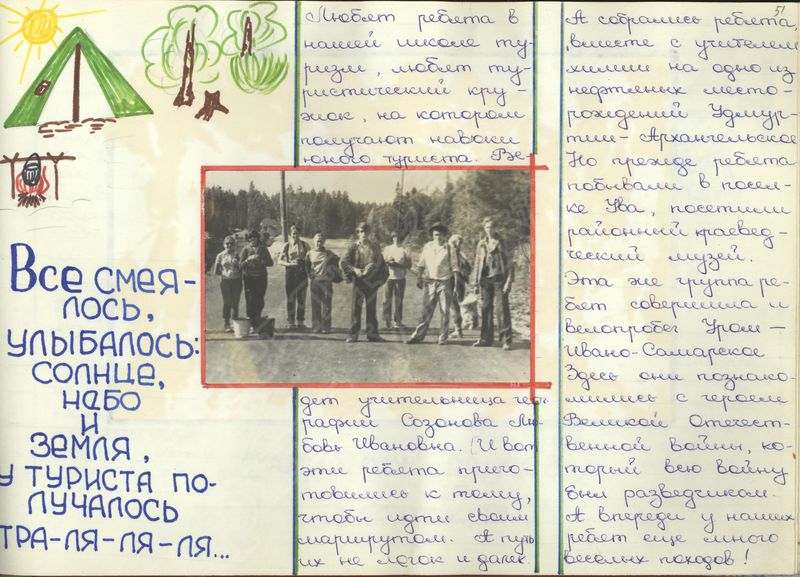 51
Все смея-
лось,
улыбалось:
солнце,
небо
и
земля,
у туриста по-
лучалось
тра-ля-ля-ля...
Любят ребята в
нашей школе ту-
ризм, любят ту-
ристический кру-
жок, на котором
получают навыки
юного туриста. Ве-
дет учительница гег-
рафии Созонова Лю-
бовь Ивановна. (И вот
эти ребята приго-
товились к тому,
чтобы идти своим
маршрутом. А путь
их не легок и далек.
А собрались ребята,
вместе с учителем
химии на одно из
нефтяных место-
рождений Удмур-
тии - Архангельское
Но прежде ребята
побывали в посел-
ке Ува, посетили
районный краевед-
ческий музей.
Эта же группа ре-
бят совершила и
велопробег Уром -
Ивано-Самарское
Здесь они познако-
мились с героем
Великой Отечест-
венной войны, ко-
торый всю войну
был разведчиком.
А впереди у наших
ребят еще много
веселых походов!